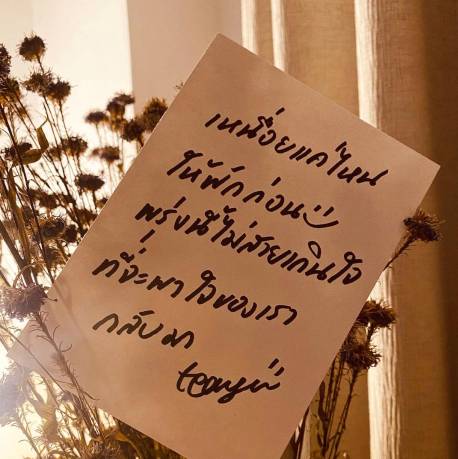 เหนื่อยแค่ไหน
ให้พักก่อนนะ
พรุ่งนี้ไม่สายเกินไป
ที่จะพาใจของเรา
กลับมา